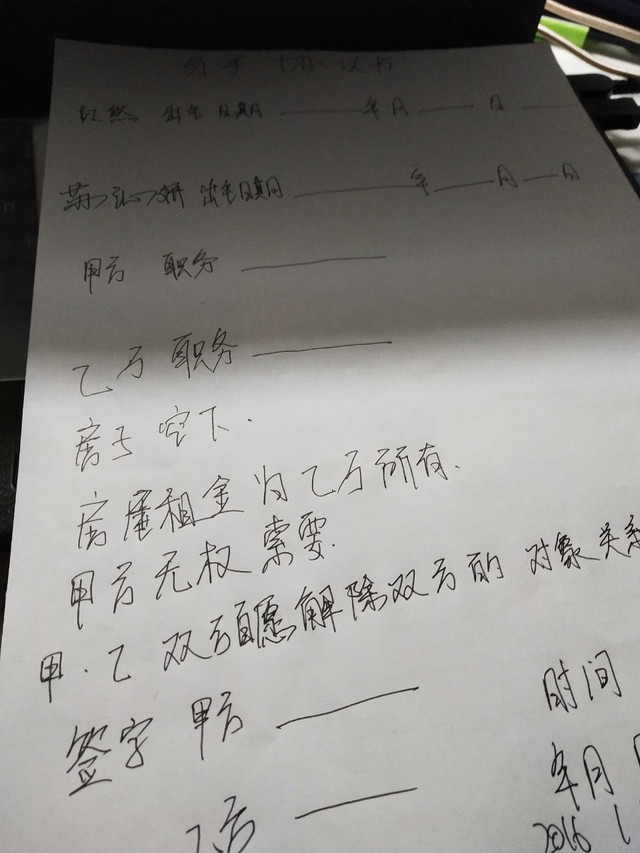 分手协议书
红然 出生日期 年 月 日
出生日期 年 月 日
甲方 职务
乙方 职务
房子空下.
房屋租金为乙方所有.
甲方无权索要.
甲.乙双方自愿解除双方的对象关系
签字 甲方 时间
年 月
乙方 2016 1